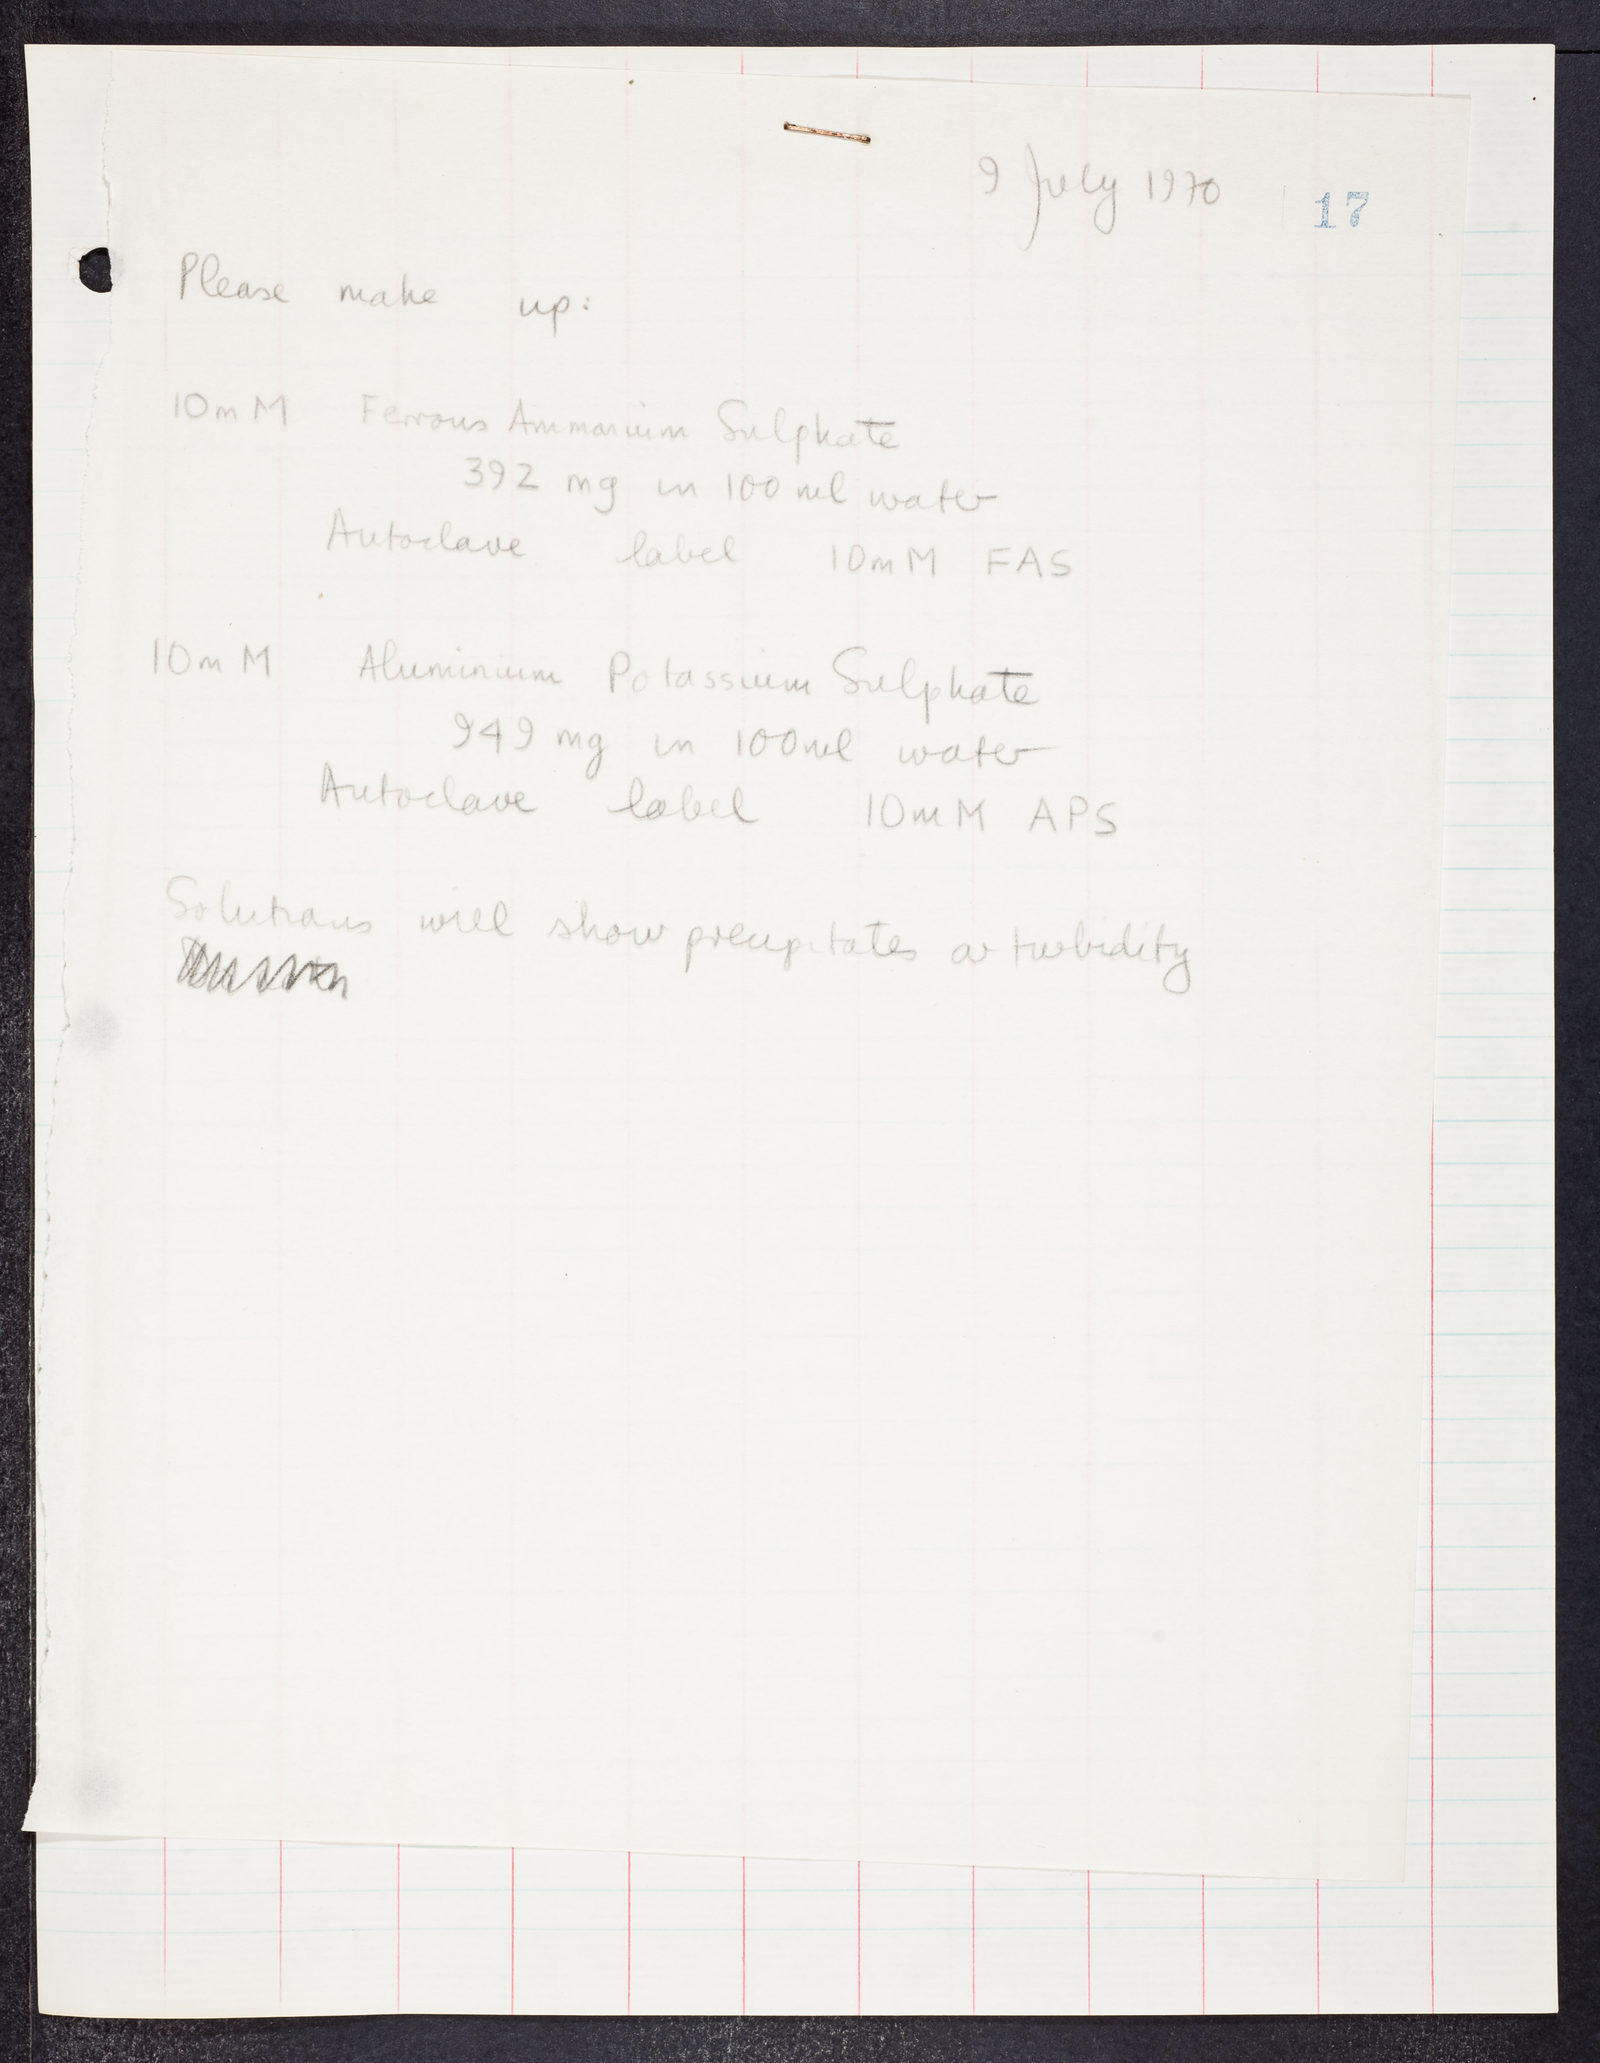 9 July 1970
17
Please make up:
10mM Ferrous Ammonium Sulphate
392 mg in 100 ml water
Autoclave label 10mM FAS
10mM Aluminium Potassium Sulphate
949 mg in 100ml water
Autoclave label 10mM APS
Solutions will show precipitates or turbidity